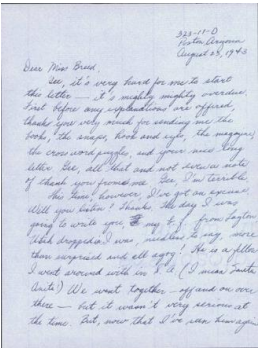 323-11-D
Poston, Arizona
August 25, 1943
Dear Miss Breed
Gee, it's very hard for me to start
this letter — it's mighty mighty overdue.
First before any explanations are offered,
thanks very much for sending me the
book, the snaps, hook and eyes, the magazine,
the crossword puzzles, and your nice long
letter. Gee, all that and not even a note
of thank you from me. Gee, I'm terrible.
This time, however, I've got an excuse.
Well you listen! Thanks, the day I was
going to write you, my b.f. from Layton
Utah dropped. I was, needless to say, more
than surprised and all agog! He is a fellow
I went around with in S.A. (I mean Santa
Anita!) We went together — off and on over
there — but it wasn't very serious at
the time. But, now that I've seen him again